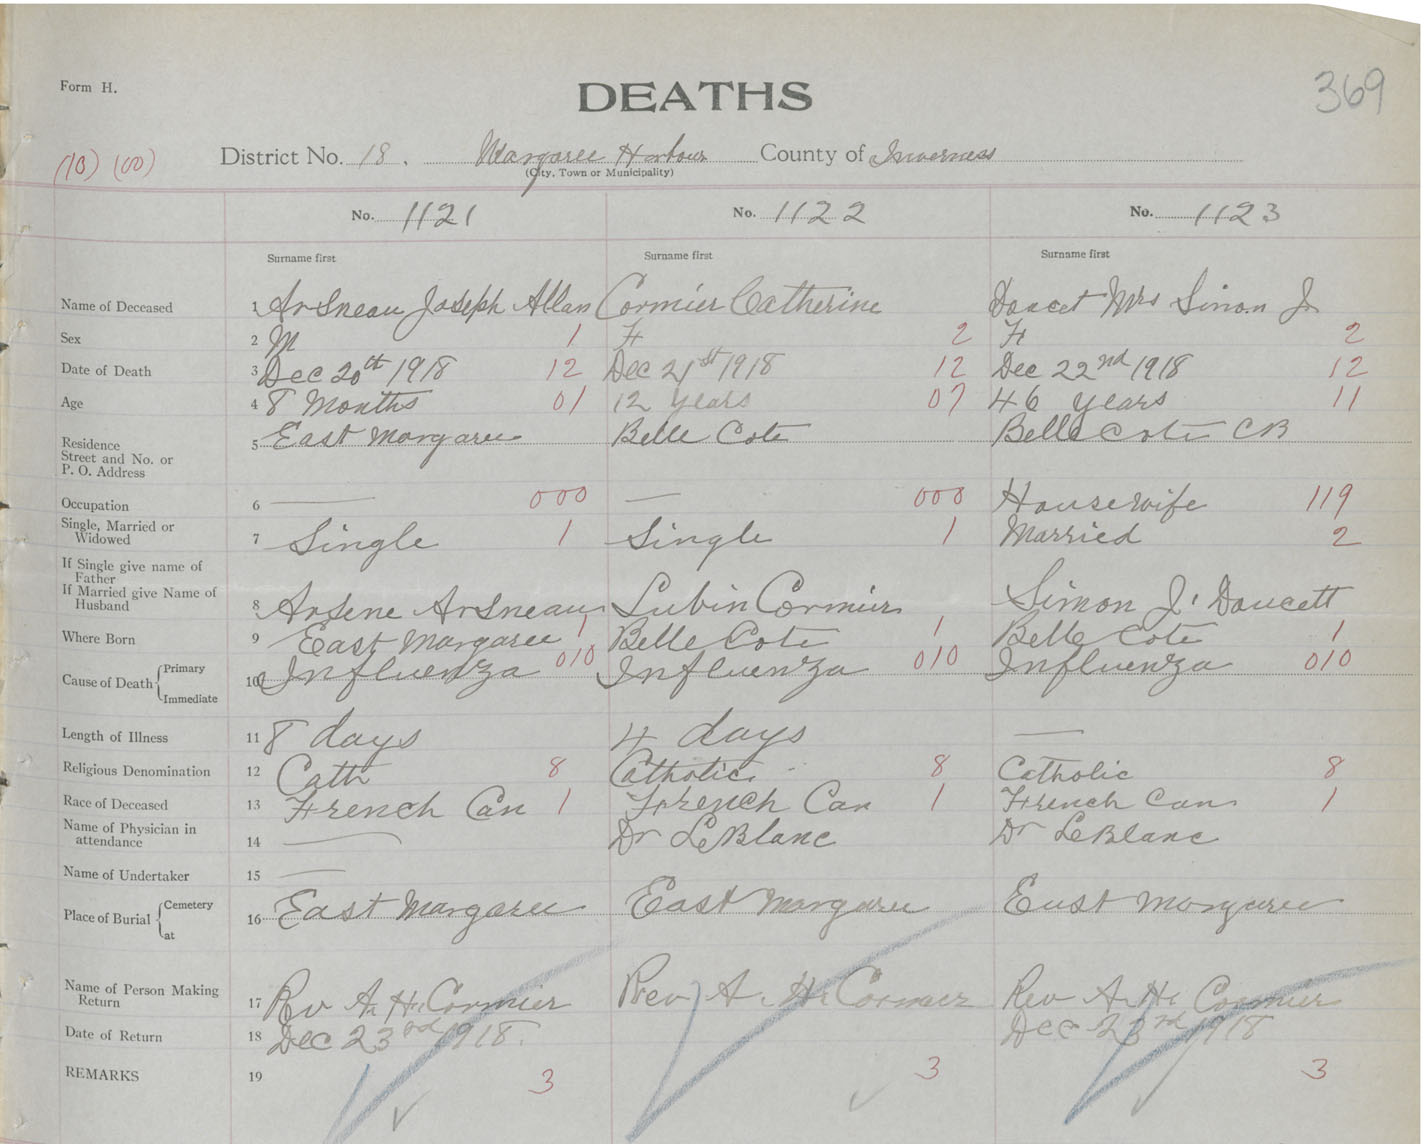 369
Form H.
DEATHS
(18) (00)
District No. 18. Margaree Harbour County of Inverness
(City, Town or Municipality)
No. 1121 No. 1122 No. 1123
Surname first Surname first Surname first
Name of Deceased 1 Arsneau Joseph Allan Cormier Catherine Doucet Mrs Simon J
Sex 2 M 1 F 2 F 2
Date of Death 3 Dec 20th 1918 12 Dec 21st 1918 12 Dec 22nd 1918 12
Age 4 8 Months 01 12 years 07 46 years 11
Residence
Street and No. or
P. O. Address 5 East Margaree Belle Cote Belle Cote CB
Occupation 6 — 000 — 000 Housewife 119
Single, Married or
Widowed 7 Single 1 Single 1 Married 2
If Single give name of
Father
If Married give Name of
Husband 8 Arsene Arsneau Lubin Cormier Simon J. Doucett
Where Born 9 East Margaree 1 Belle Cote 1 Belle Cote 1
Cause of Death Primary
Immediate 10 Influenza 010 Influenza 010 Influenza 010
Length of Illness 11 8 days 4 days —
Religious Denomination 12 Cath 8 Catholic. 8 Catholic 8
Race of Deceased 13 French Can 1 French Can 1 French Can 1
Name of Physician in
attendance 14 — Dr LeBlanc Dr LeBlanc
Name of Undertaker 15 —
Place of Burial Cemetery
at 16 East Margaree East Margaree East Margaree
Name of Person Making
Return 17 Rev A. H. Cormier Rev A. H. Cormier Rev A. H. Cormier
Date of Return 18 Dec 23rd 1918. Dec 23rd 1918
REMARKS 19 3 3 3